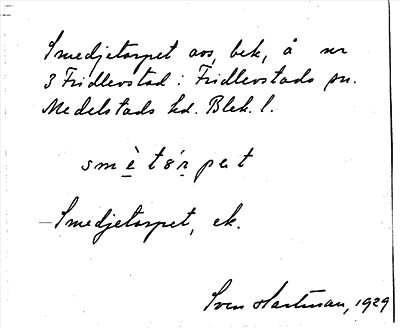 Smedjetorpet avs, bek, å nr
3 Fridlevstad i Fridlevstads sn.
Medelstads hd. Blek. l.
smètórpet
–Smedjetorpet, ek.
Sven Hartman, 1929